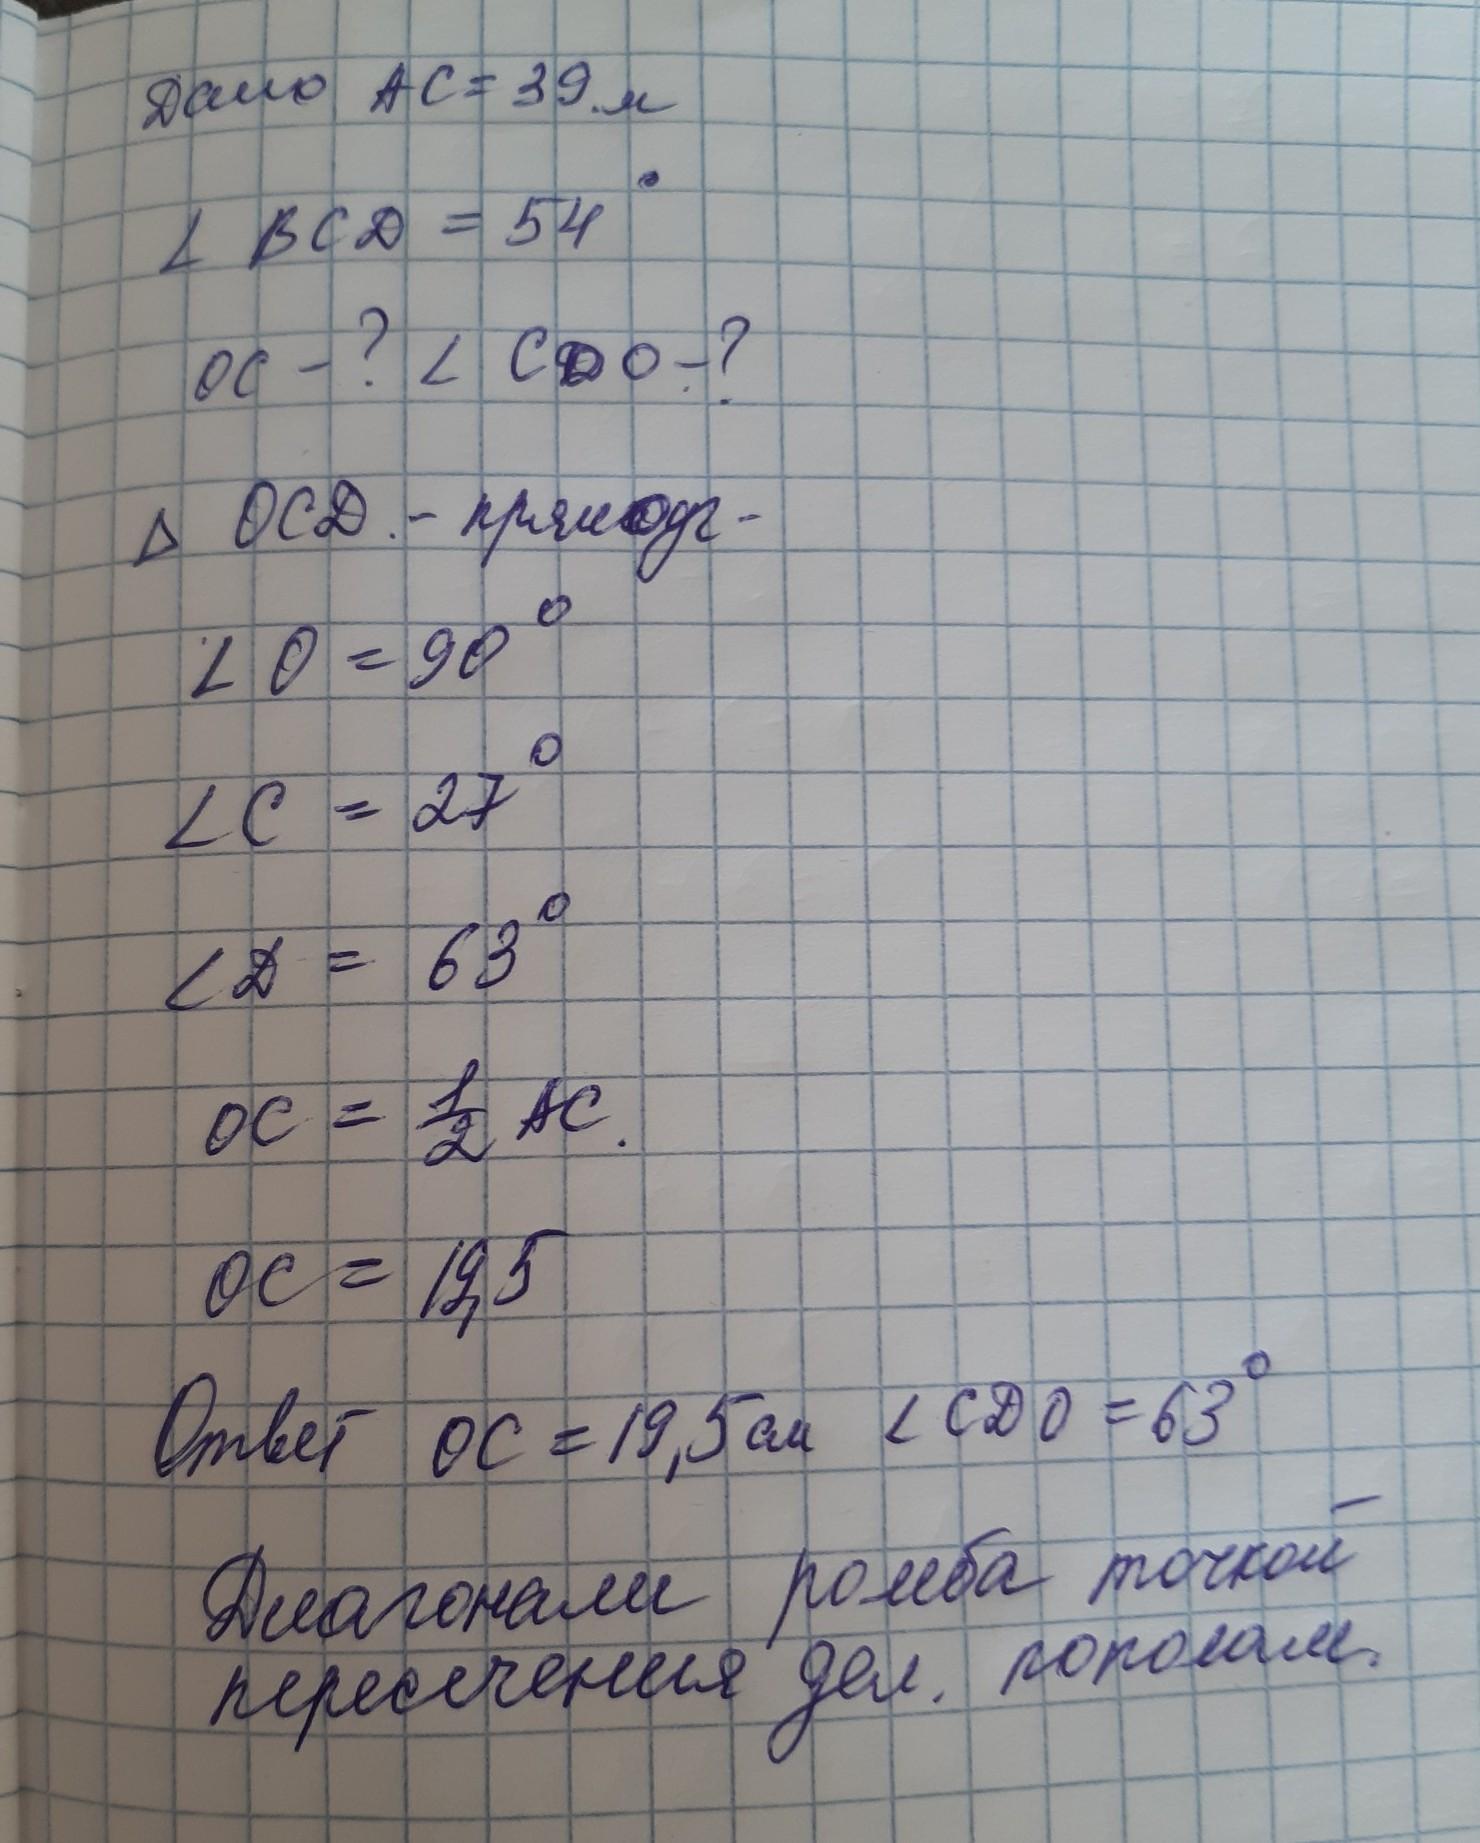 Дано AC = 39 м
∠ BCD = 54°
OC - ? ∠ CDO - ?
Δ OCD. - прямоуг -
∠ O = 90°
∠ C = 27°
∠ D = 63°
OC = 1/2 AC.
OC = 19,5
Ответ OC = 19,5 см ∠ CDO = 63°
Диагонали ромба точкой
пересечения дел. пополам.